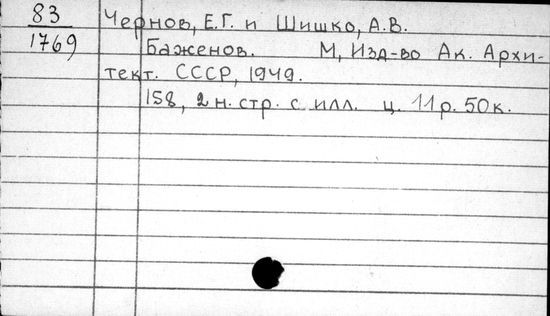 83 Чернов, Е.Г. и Шишко, А.В.
1769 Баженов. М, Изд-во Ак. Архи-
тект. СССР, 1949.
158, 2 н. стр. с илл. ц. 11 р. 50 к.